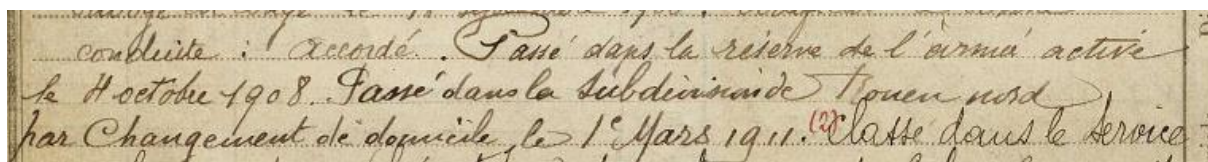 conduite : accordé. Passé dans la réserve de l'armé active
le 4 octobre 1908. Passé dans la subdivision de Rouen nord
par Changement de domicile, le 1e Mars 1911. (2) Classé dans le Service